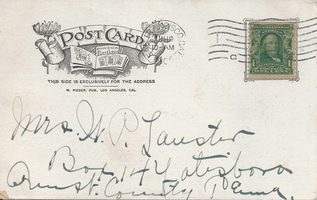 POST CARD
THIS SIDE IS EXCLUSIVELY FOR THE ADDRESS
M. RIEDER, PUB., LOS ANGELES, CAL.
10-AM
1
Mrs. H. P. Lauster
Box 14 Yatesboro
Armst. County Penna.